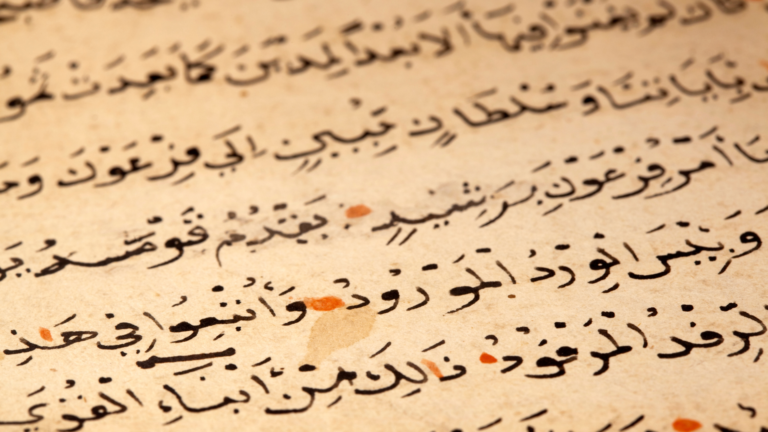 كَأَن لَّمْ يَغْنَوْا فِيهَا أَلَا بُعْدًا لِّمَدْيَنَ كَمَا بَعِدَتْ ثَمُو
بِآيَاتِنَا وَسُلْطَانٍ مُّبِينٍ إِلَى فِرْعَوْنَ وَمَ
مَا أَمْرُ فِرْعَوْنَ بِرَشِيدٍ يَقْدُمُ قَوْمَهُ يَو
وَبِئْسَ الْوِرْدُ الْمَوْرُودُ وَأُتْبِعُوا فِي هَذِ
الرِّفْدُ الْمَرْفُودُ ذَلِكَ مِنْ أَنْبَاءِ الْقُرَى